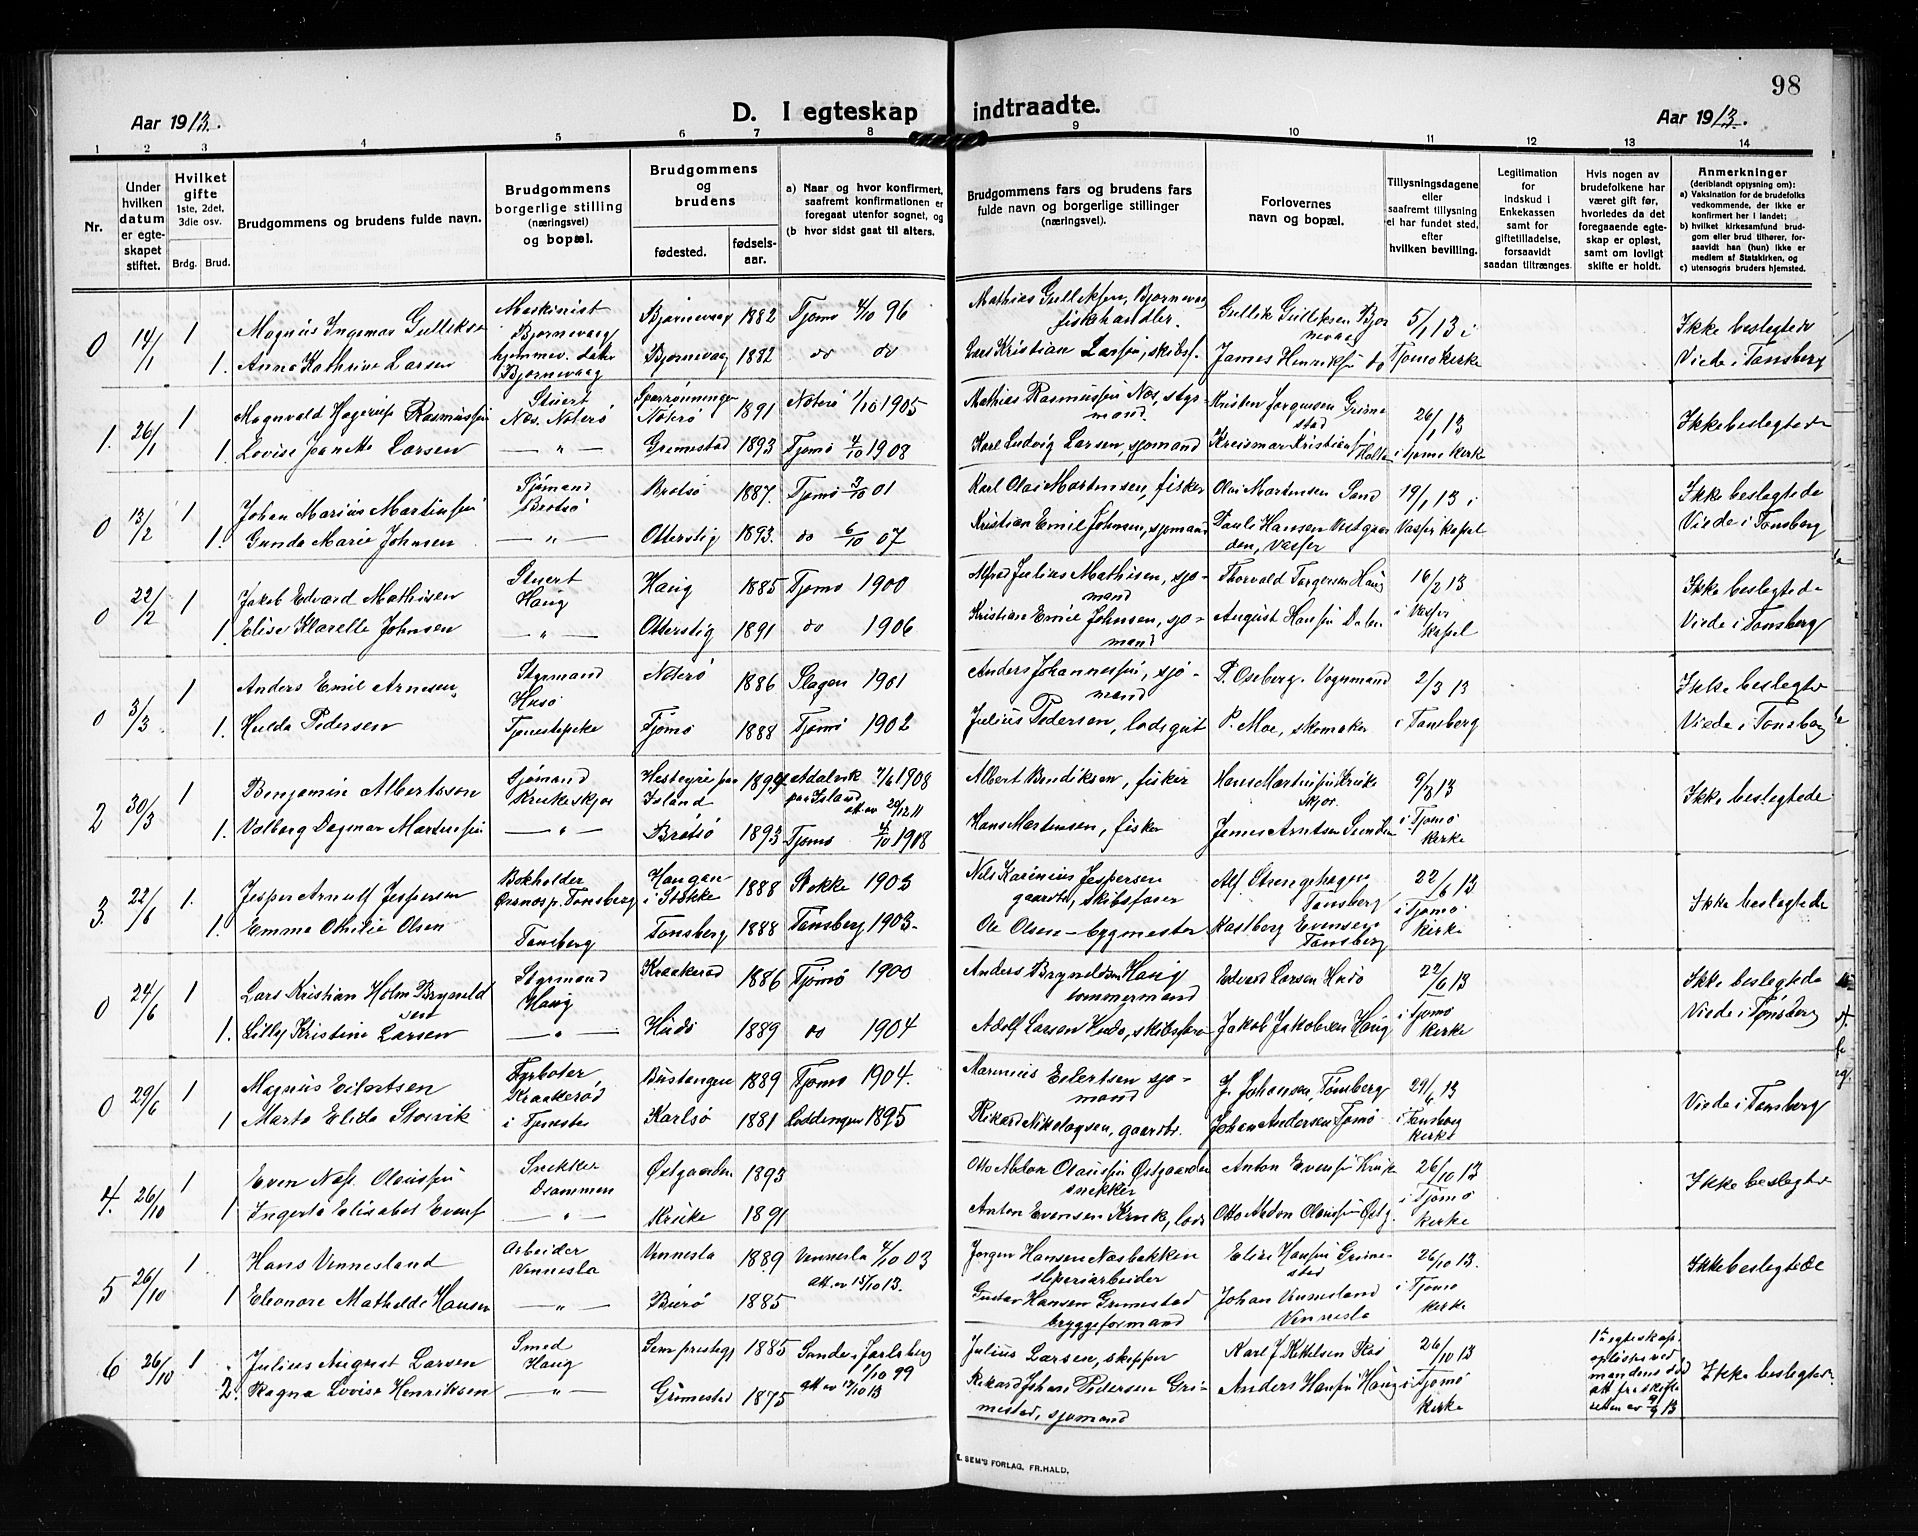 98
Aar 1913.
D. I egteskap indtraadte.
Aar 1913.
1 2 3 4 5 6 7 8 9 10 11 12 13 14
Nr.
Under hvilken datum er egteskapet stiftet.
Hvilket gifte 1ste, 2det, 3die osv.
Brdg. Brud.
Brudgommens og brudens fulde navn.
Brudgommens borgerlige stilling (næringsvei) og bopæl.
Brudgommens og brudens
fødested. fødselsaar.
a) Naar og hvor konfirmert, saafremt konfirmationen er foregaat utenfor sognet, og
(b hvor sidst gaat til alters.
Brudgommens fars og brudens fars fulde navn og borgerlige stillinger (næringsvei).
Forlovernes navn og bopæl.
Tillysningsdagene eller saafremt tillysning ei har fundet sted, efter hvilken bevilling.
Legitimation for Indskud i Enkekassen samt for giftetilladelse, forsaavidt saadan tiltrænges.
Hvis nogen av brudefolkene har været gift før, hvorledes da det foregaaende egteskap er opløst, samt om lovligt skifte er holdt.
Anmerkninger (deriblandt opjysning om):
a) Vaksination for de brudefolks vedkommende, der ikke er konfirmert her i landet;
b) hvilket kirkesamfund brudgom eller brud tilhører, forsaavidt han (hun) ikke er medlem af Statskirken, og
c) utensogns bruders hjemsted.
0 14/1 1 Magnus Ingemar Gulliksen Maskinist Bjørnevaag Bjørnevaag 1882 Tjømø 4/10 96 Mathias Gulliksen, Bjørnevaag fiskhandler. Gullik Gulliksen Bjørnevaag 5/1 13 i Ikke beslegtede
1. Anna Kathrine Larsen hjemmev. datter Bjørnevaag Bjørnevaag 1882 do do Lars Kristian Larsen, skibsf. James Henriksen do Tjømø kirke Viede i Tønsberg
1. 26/1 1 Magnvald Hagerup Rasmussen Stuert Næs. Nøterø Nøterø 1891 Nøterø 1/10 1905 Mathias Rasmussen Næs, styrmand. Kristen Jørgensen Grimestad 26/1 13 Ikke beslegtede
1. Lovise Jeanette Larsen — " — Grimestad 1893 Tjømø 4/10 1908 Karl Ludvig Larsen, sjømand Holte i Tjømø kirke
0 13/2 1 Johan Marius Martinsen Sjømand Brøtsø Brøtsø 1887. Tjømø 3/10 01 Karl Olai Martensen, fisker Olai Martensen Sand 19/1 13 i Ikke beslegtede
1. Gunda Marie Johnsen — " — Otterstig 1893. do 6/10 07 Kristian Emil Johnsen, sjømand Pauli Hansen Vestgaarden, Vasser Vasser kapel Viede i Tønsberg
0 22/2 1 Jakob Edvard Mathisen Stuert Haug Haug 1885 Tjømø 1900 Alfred Julius Mathisen, sjømand Thorvald Torgersen Haug 16/2 13 Ikke beslegtede
1 Elise Klarelle Johnsen — " — Otterstig 1891 do 1906 Kristian Emil Johnsen, sjømand August Hansen Dalen i Vasser kapel Viede i Tønsberg
0 3/3 1 Anders Emil Arnesen Styrmand Husø Nøterø 1886 Slagen 1901 Anders Johannessen, sjømand P. Oseberg. Vognmand 2/3 13 Ikke beslegtede
1. Hulda Pedersen Tjenestepike Tjømø 1888 Tjømø 1902 Julius Pedersen, lodsgut P. Moe, skomaker i Tønsberg Viede i Tønsberg
2 30/3 1 Benjamin Albertsson Sjømand Krukeskjær Island 1894 Adalvik paa Island 7/6 1908 att. av 20/12 11 Albert Bendiksen, fisker Hans Martinsen Kruke skjær. 9/3 13 Ikke beslegtede
1. Valborg Dagmar Martinsen — " — Brøtsø 1893 Tjømø 4/10 1908 Hans Martensen, fisker James Arntsen Sunden i Tjømø kirke
3. 22/6 1. Jesper Arnulf Jespersen Bokholder Tønsberg Haugan i Stokke 1888 Stokke 1903 Nils Karinius Jespersen gaardbr., skibsfører Alf Strengehagen Tønsberg 22/6 13 Ikke beslegtede
1. Emma Othilie Olsen Tønsberg Tønsberg 1888 Tønsberg 1903. Ole Olsen – bygmester Kastberg Evensen Tønsberg i Tjømø kirke
0 24/6 1 Lars Kristian Holm Bryneldsen Styrmand Haug Kraakerød 1886 Tjømø 1900 Anders Bryneldsen Haug tømmermand Edvard Larsen Hudø 22/6 13 Ikke beslegtede
1. Lilly Kristine Larsen — " — Hudø 1889 do 1904 Adolf Larsen Hudø, skibsfører Jakob Jakobsen Haug i Tjømø kirke Viede i Tønsberg
0 29/6 1 Magnus Eilertsen Fyrbøter Kraakerød Bustangen 1889 Tjømø 1904. Marinius Eilertsen sjømand J. Johansen, Tønsberg 29/6 13 Viede i Tønsberg
1 Marta Elida Storvik i Tjeneste Karlsø 1881 Loddingen 1895 Rikard Nikolaysen, gaardbr. Johan Andersen Tjømø i Tønsberg kirke
4. 26/10 1 Even Næs Olaussen Snekker Drammen Østgaarden 1893 Otto Abdon Olaussen Østgaarden snekker Anton Evensen Kruke 26/10 13 Ikke beslegtede
1 Ingerta Elisabet Evensen — " — Kruke 1891 Anton Evensen Kruke, lods Otto Abdon Olaussen Østg. i Tjømø kirke
5 26/10 1. Hans Vennesland Arbeider Vennesla Vennesla 1889 Vennesla 4/10 03 Att. av 15/10 13. Jørgen Hansen Næsbakken sliperiarbeider Hansen Grimestad 26/10 13. Ikke beslegtede
1 Eleonore Mathilde Hansen — " — Buerø 1885 Gustav Hansen Grimestad bryggeformand Johan Vennesland Vennesla i Tjømø kirke
6 26/10 1 Julius August Larsen Smed Haug Sem prestegj. 1885 Sande i Jarlsberg 1/10 99 att av 17/10 13 Julius Larsen, skipper Karl J. Kittelsen 26/10 13 1ste egteskap opløst ved mandens død att fra skifteretten av 9/9 13 Ikke beslegtede.
2. Ragna Lovise Henriksen — " — Grimestad 1875 Rikard Johan Pedersen Grimestad, sjømand Anders Hansen Haug i Tjømø kirke
E. SEM'S FORLAG, FR.HALD.